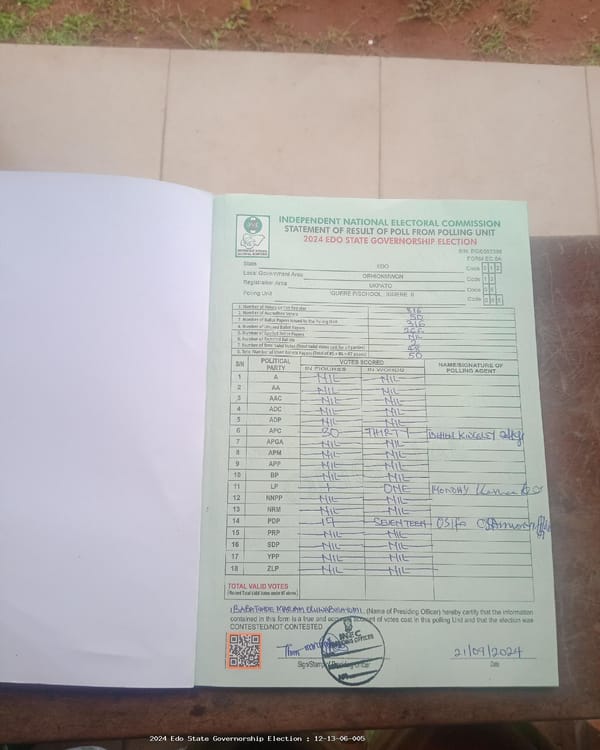 INDEPENDENT NATIONAL ELECTORAL COMMISSION
STATEMENT OF RESULT OF POLL FROM POLLING UNIT
2024 EDO STATE GOVERNORSHIP ELECTION
FORM EC 8A
State EDO Code 0 1 2
Local Government Area ORHIONMWON Code 1 2
Registration Area UGPATO Code
Polling Unit Code
1. Number of Voters on the Register 316
2. Number of Accredited Voters 50
3. Number of Ballot Papers Issued to the Polling Unit 316
4. Number of Unused Ballot Papers 266
5. Number of Spoiled Ballot Papers NIL
6. Number of Rejected Ballots 2
7. Number of Total Valid Votes (Total Valid Votes cast for all parties) 48
50
S/N POLITICAL PARTY VOTES SCORED NAME/SIGNATURE OF POLLING AGENT
IN FIGURES IN WORDS
1 A NIL NIL
2 AA NIL NIL
3 AAC NIL NIL
4 ADC NIL NIL
5 ADP NIL NIL
6 APC 30 THIRTY
7 APGA NIL NIL
8 APM NIL NIL
9 APP NIL NIL
10 BP NIL NIL
11 LP 1 ONE MONDAY
12 NNPP NIL NIL
13 NRM NIL NIL
14 PDP 17 SEVENTEEN
15 PRP NIL NIL
16 SDP NIL NIL
17 YPP NIL NIL
18 ZLP NIL NIL
TOTAL VALID VOTES
I BABATUNDE MARIAM (Name of Presiding Officer) hereby certify that the information
contained in this form is a true and accurate account of votes cast in this polling Unit and that the election was
CONTESTED/NOT CONTESTED
INEC
21/09/2024
Date
2024 Edo State Governorship Election : 12-13-06-005